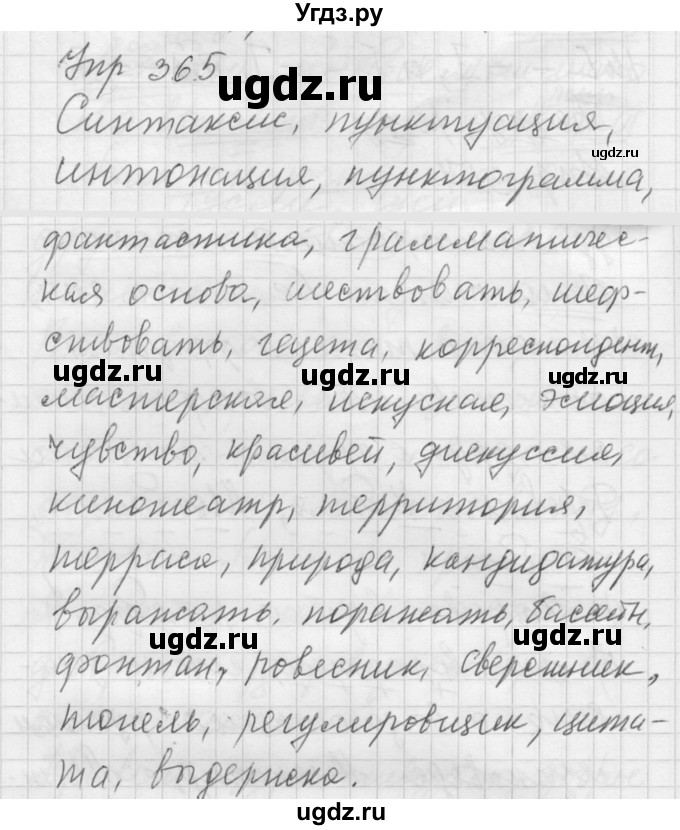 Угдз.ру
Упр 365
ugdz.ru
Синтаксис, пунктуация,
ugdz.ru
интонация, пунктограмма,
фантастика, грамматичес-
ugdz.ru
кая основа, шествовать, шеф-
ствовать, газета, корреспондент,
ugdz.ru ugdz.ru
мастерская, искусная, эмоция,
чувство, красивей, дискуссия,
кинотеатр, территория,
терраса, природа, кандидатура,
выражать, поражать, бассейн,
ugdz.ru ugdz.ru
фонтан, ровесник, сверстник,
тонель, регулировщик, цита-
та, выдержка.
ugdz.ru